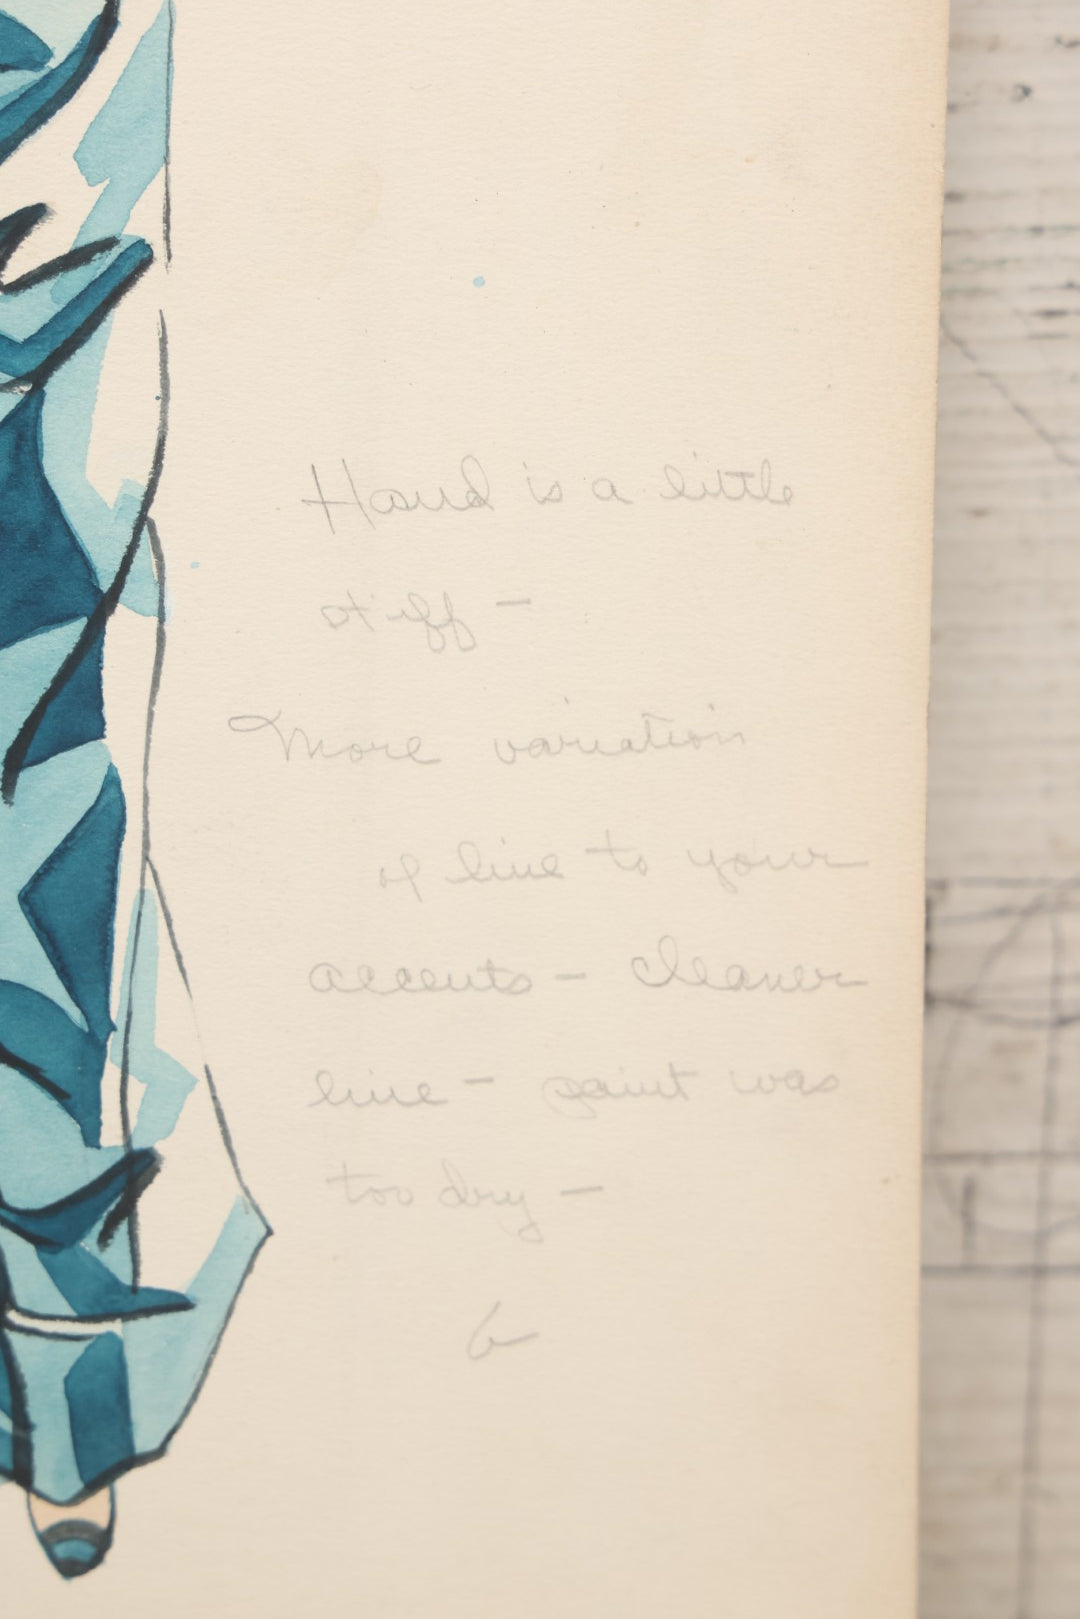 Hand is a little
stiff –
More variation
of line to your
accents – cleaner
line – paint was
too dry –